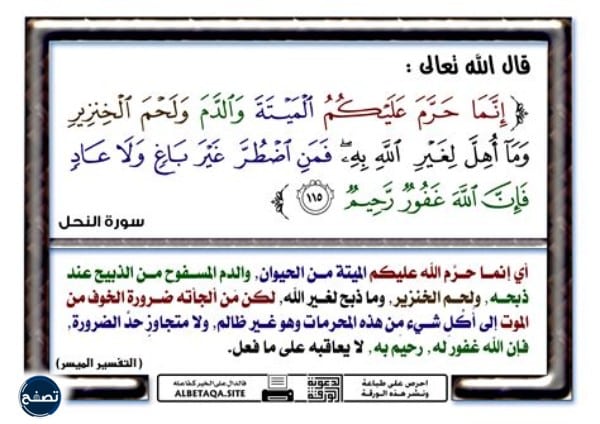 قال الله تعالى :
﴿ إِنَّمَا حَرَّمَ عَلَيْكُمُ الْمَيْتَةَ وَالدَّمَ وَلَحْمَ الْخِنزِيرِ
وَمَا أُهِلَّ لِغَيْرِ اللَّهِ بِهِ ۖ فَمَنِ اضْطُرَّ غَيْرَ بَاغٍ وَلَا عَادٍ
فَإِنَّ اللَّهَ غَفُورٌ رَّحِيمٌ ١١٥ ﴾
سورة النحل
أي إنما حرَّم الله عليكم الميتة من الحيوان, والدم المسفوح من الذبيح عند
ذبحه, ولحم الخنزير, وما ذبح لغير الله, لكن مَن ألجأته ضرورة الخوف من
الموت إلى أَكْلِ شيء مِن هذه المحرمات وهو غير ظالم, ولا متجاوزٍ حدَّ الضرورة,
فإن الله غفور له, رحيم به, لا يعاقبه على ما فعل.
(التفسير الميسر)
احرص على طباعة
ونشر هذه الورقة
لدعوية
الورقة
فالدال على الخير كفاعله
ALBETAQA.SITE
تصفح